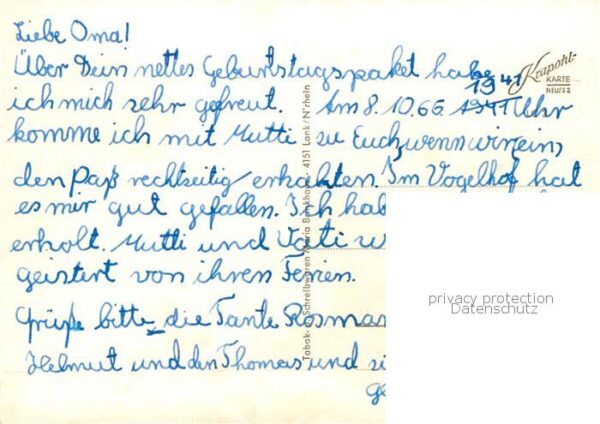 Liebe Oma!
Über Dein nettes Geburtstagspaket habe
ich mich sehr gefreut. Am 8.10.66 19⁴¹ Uhr
komme ich mit Mutti zu Euch, wenn wir ein,
den Paß rechtzeitig erhalten. Im Vogelhof hat
es mir gut gefallen. Ich hab
erholt. Mutti und Vati w
geistert von ihren Ferien.
Grüße bitte die Tante Rosmar
Helmut und den Thomas und si
ge
Krapohl-
KARTE
NEUSS 2
Tabak- u. Schreibwaren 4151 Lank/N'rhein
privacy protection
Datenschutz